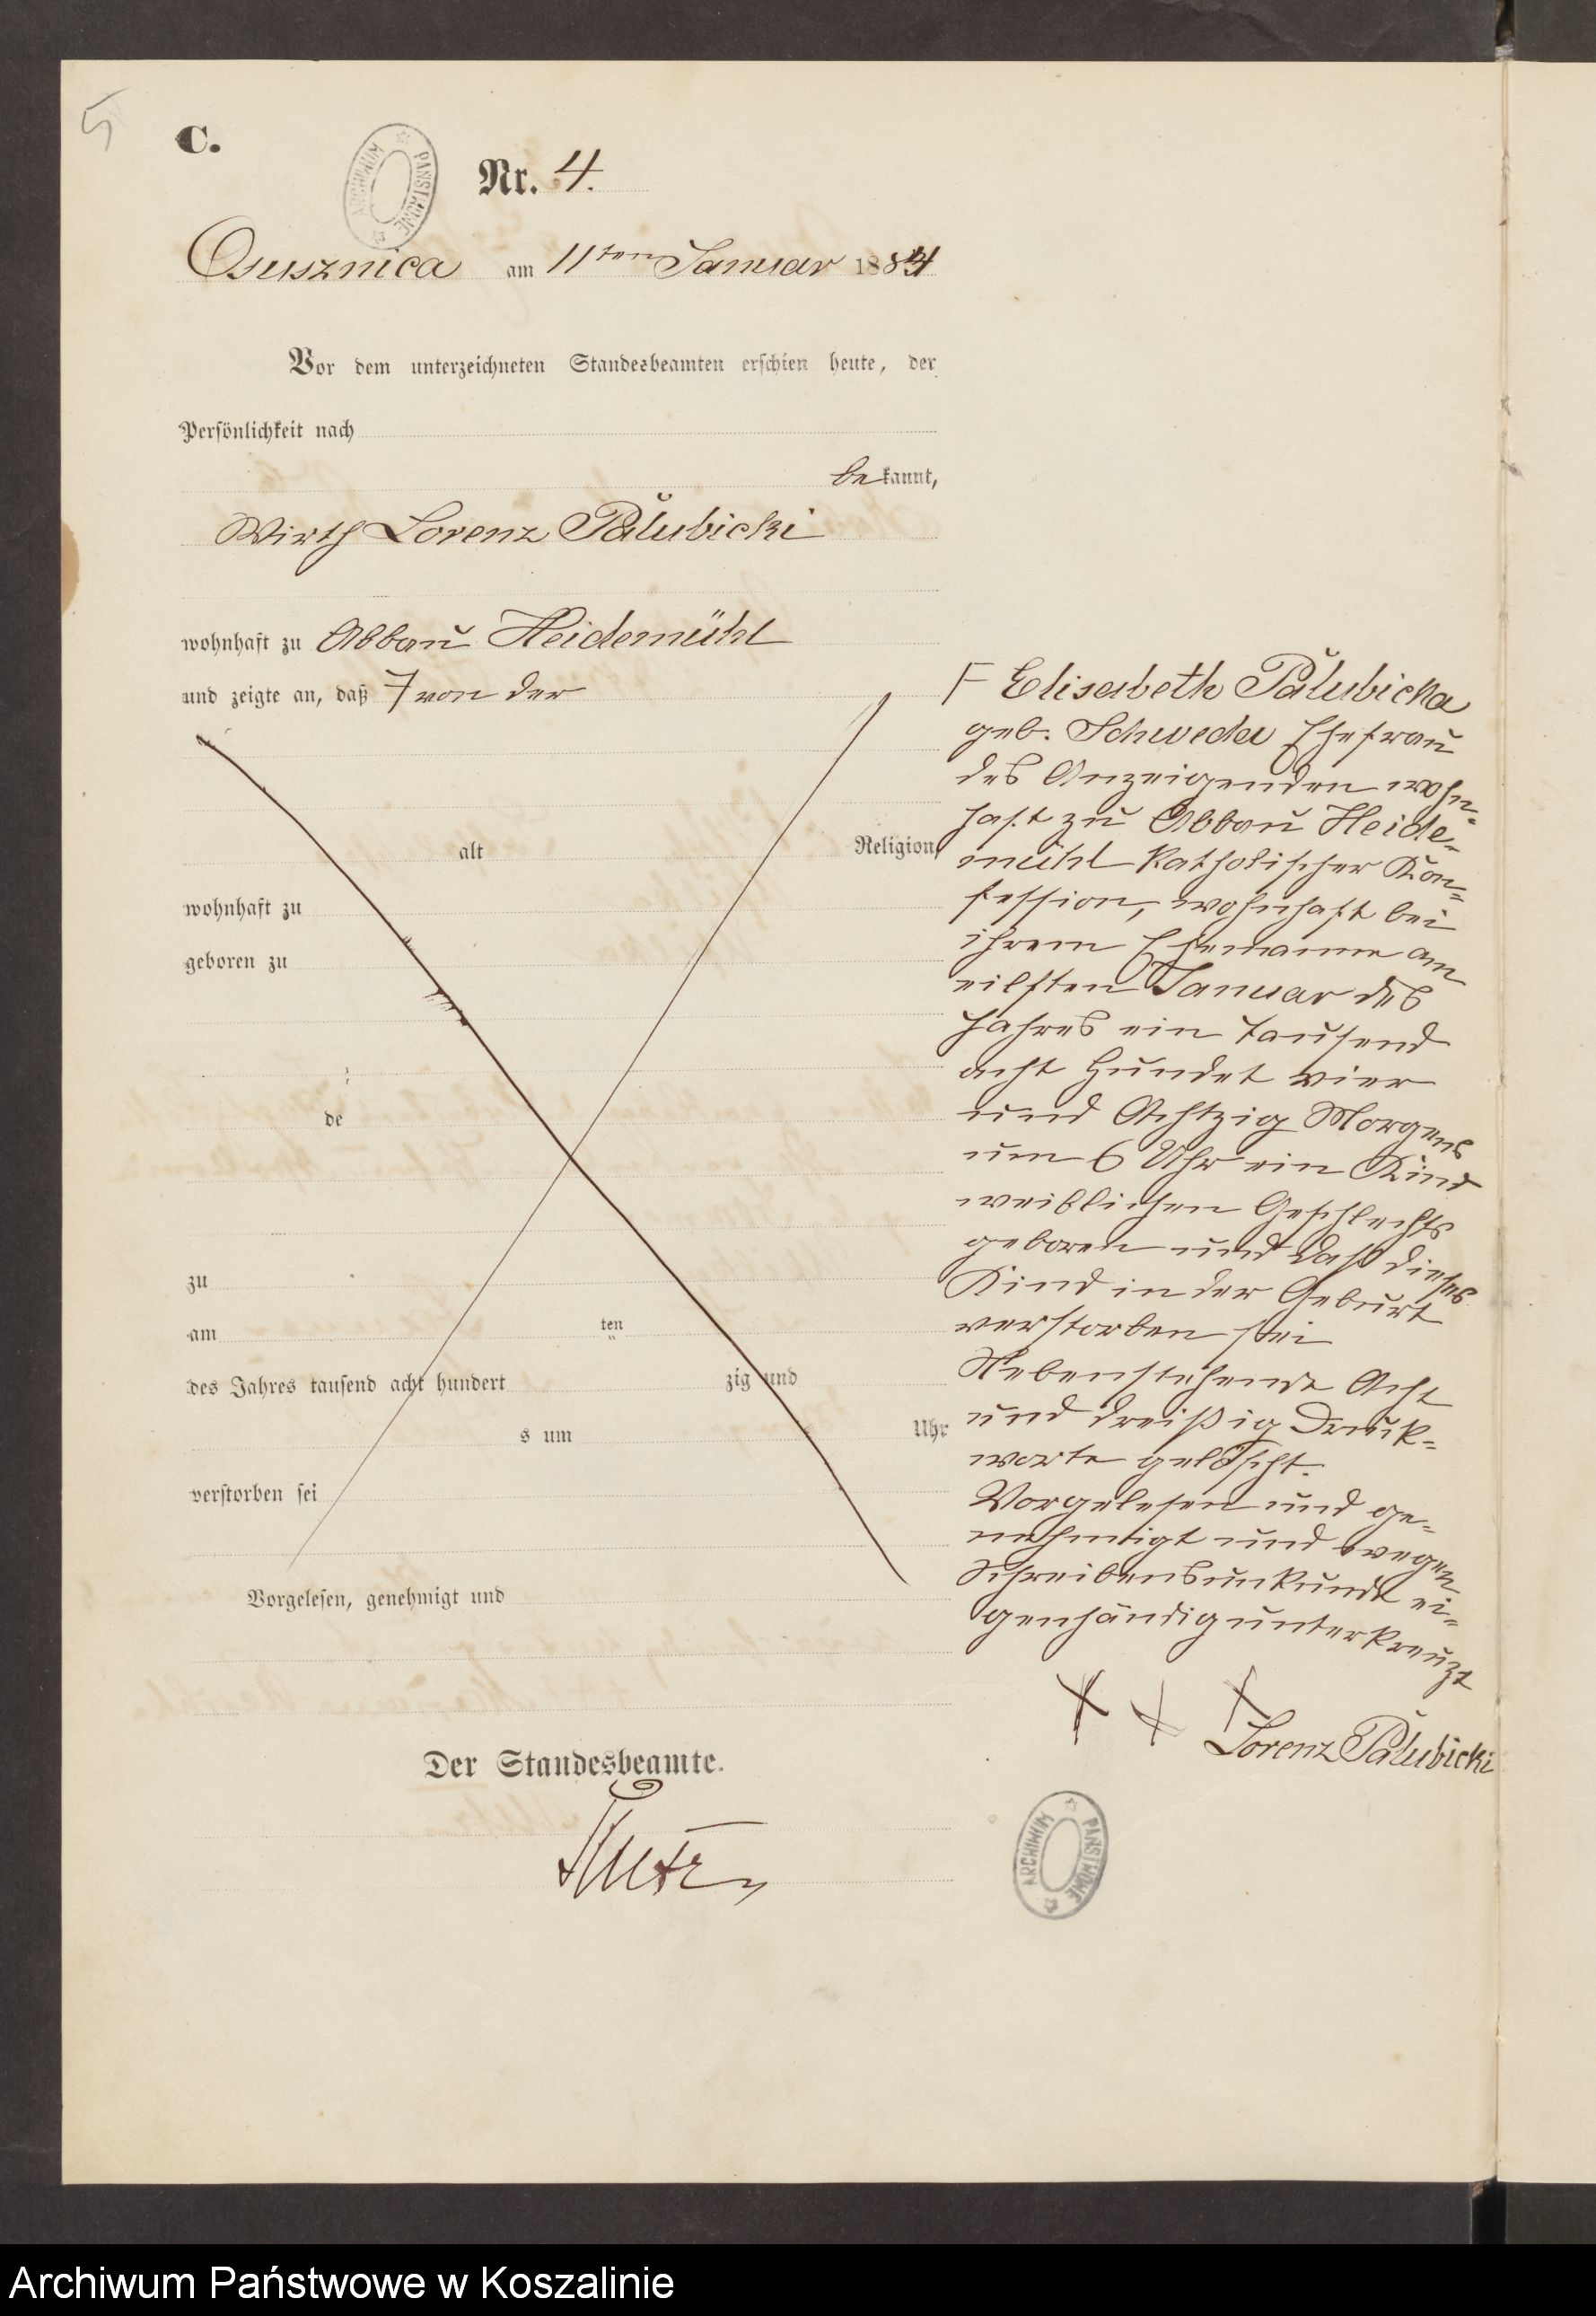 5
C.
ARCHIWUM PAŃSTWOWE
Nr. 4.
Osusznica am 11ten Januar 1884
Vor dem unterzeichneten Standesbeamten erschien heute, der
Persönlichkeit nach
bekannt,
Wirth Lorenz Pălubicki
wohnhaft zu Abbau Heidemühl
und zeigte an, daß von der
alt Religion,
wohnhaft zu
geboren zu
de
zu
am ten
des Jahres tausend acht hundert zig und
s um Uhr
verstorben sei
Vorgelesen, genehmigt und
Der Standesbeamte.
F Elisabeth Pălubicka
geb. Schweda Ehefrau
des Anzeigenden wohn=
haft zu Abbau Heide=
mühl katholischer Kon=
fession, wohnhaft bei
ihrem Ehemanne am
eilften Januar des
Jahres ein tausend
acht Hundet vier
und Achtzig Morgens
um 6 Uhr ein Kind
weiblichen Geschlechts
geboren und daß dieses
Kind in der Geburt
verstorben sei
Nebenstehende Acht
und dreißig Druck=
worte gelöscht.
Vorgelesen und ge=
nehmigt und wegen
Schreibensunkunde ei=
genhändig unterkreuzt
X X X
Lorenz Pălubicki
ARCHIWUM PAŃSTWOWE
Archiwum Państwowe w Koszalinie